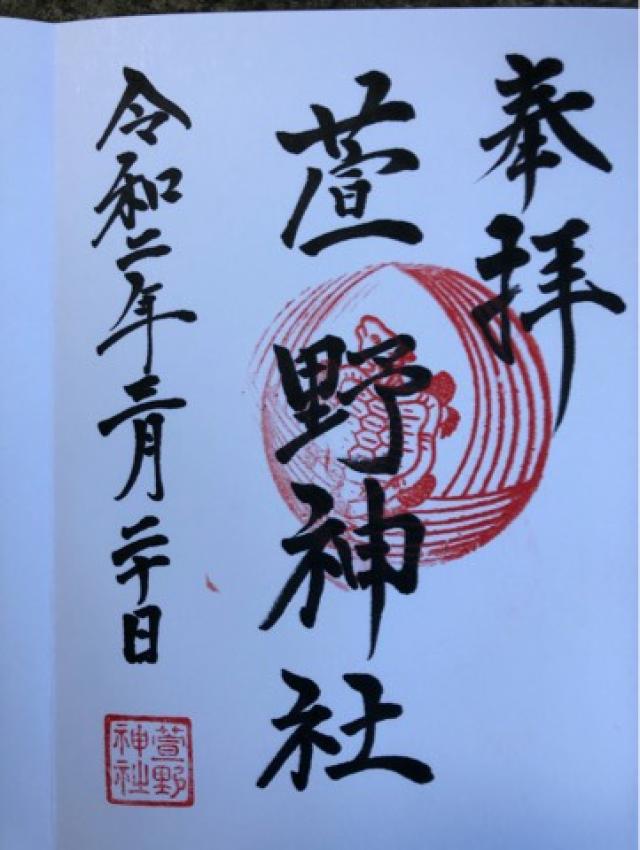 奉拝
萱野神社
令和二年三月二十日
萱野
神社